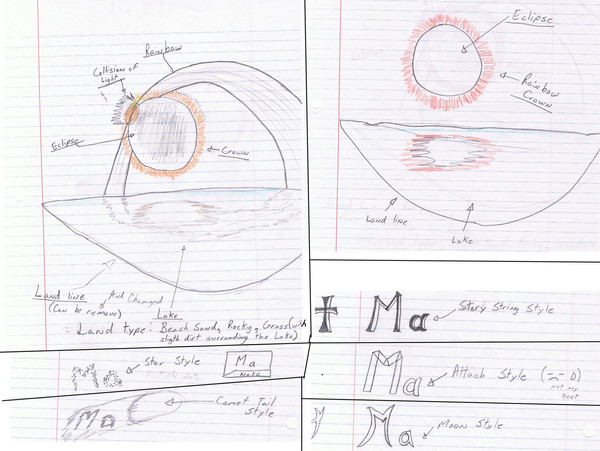 Rainbow
Collision of
Light
Eclipse
Crown
Land line
(Can be remove)
And Changed
Lake
Land type: Beach Sand, Rocky, Grass(with
sligth dirt surrounding the Lake)
Eclipse
Rainbow
Crown
Land line
Lake
Ma
Star Style
Ma
Note
Ma
Comet Tail
Style
Ma
Story String Style
Ma
Attach Style
Not my
best
Ma
Moon Style